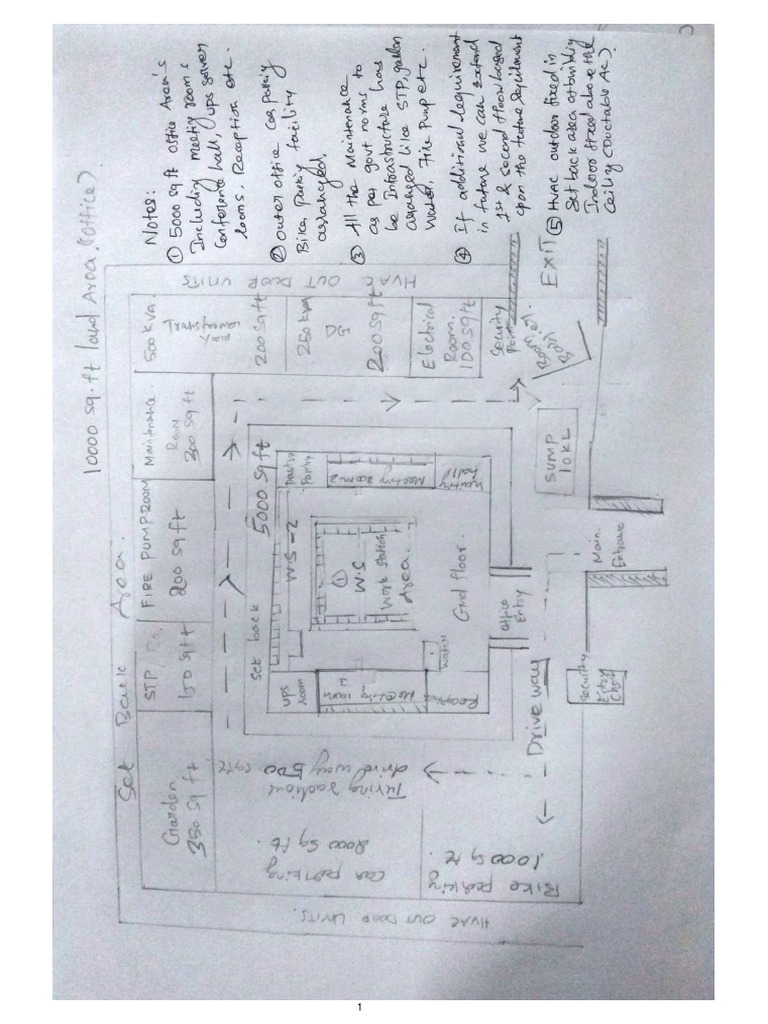 10000 sq.ft land Area. (office)
Set Back Area.
Notes:
① 5000 sqft office Area's
Including meeting room's
Conference hall, ups server
rooms. Reception etc.
② outer office car parkiy
Bike, parkiy facility
arranged.
③ All the Maintenance
as per govt norms to
be Infrastructure has
arranged like STP, garden
Water, Fire Pump etc.
④ If additional requirement
in future we can Extend
1st & second floor based
upon the future requirement
⑤ HVAC outdoor fixed in
Set back area of building
Indoor fixed above the
Ceiliy (Ductable AC).
HVAC OUT DOOR UNITS
500 KVA.
200 sq ft
250 KVA
DG
200 sq ft
Electrical
Room.
100 sq ft
Security
Point
EXIT
Maintenance
Room
300 sq ft
FIRE PUMP ROOM
200 sq ft
STP
150 sq ft
Garden
350 sq ft
5000 sq ft
Set back
Pantry
Meeting room-2
hall
W.S-2
①
W.S
Work station
Area.
Grd floor.
UPS
room
Meeting room
1
Office
Entry
SUMP
10KL
Main
Entrance
Drive way
Security
Entry
driv way 500 sq ft.
Car parking
2000 sq ft.
Bike parking
1000 sq ft.
HVAC OUT DOOR UNITS.
1